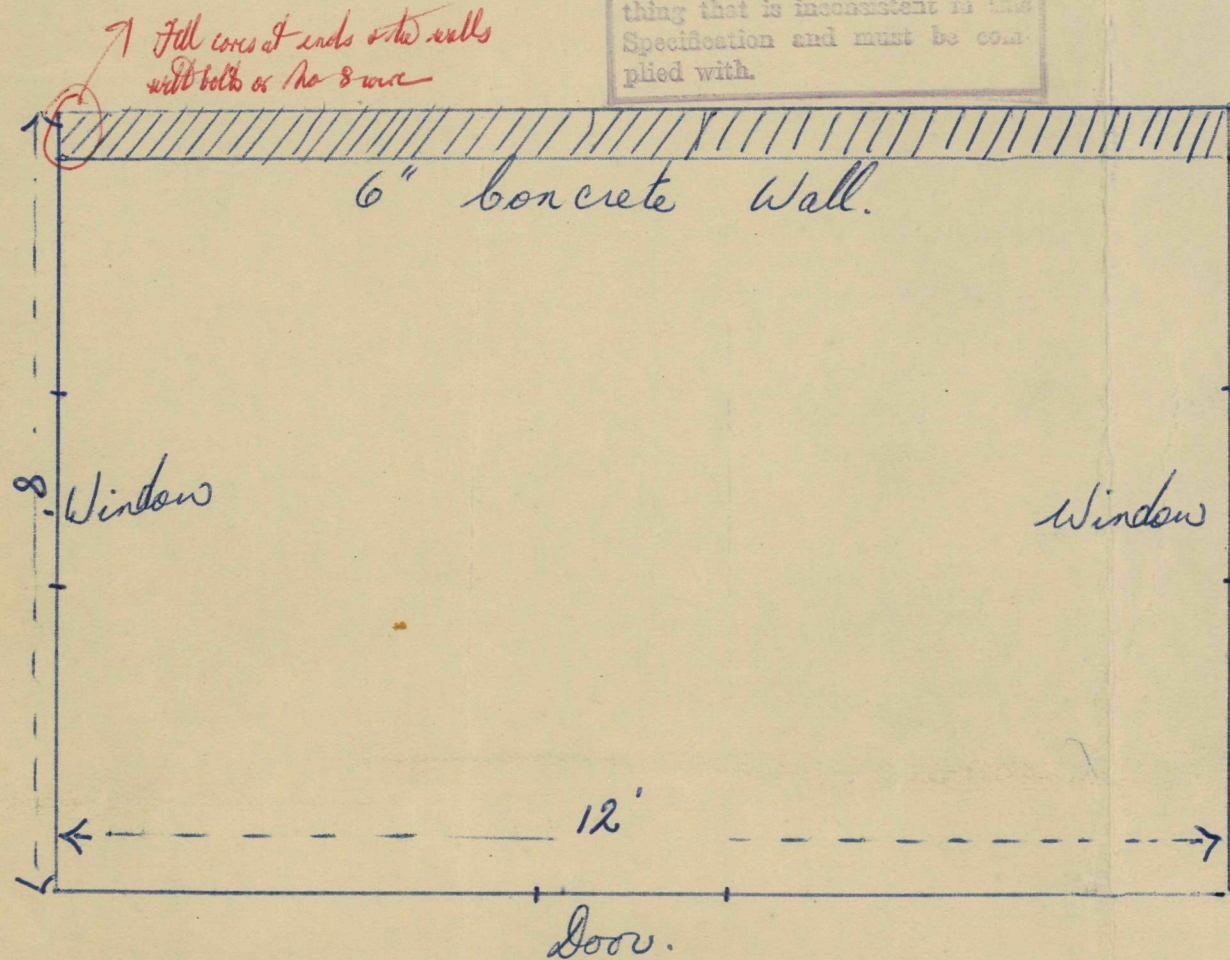 Fill cores at ends of the walls
with bolts or No 8 wire
thing that is inconsistent in this
Specification and must be com-
plied with.
6" Concrete Wall.
8'
Window
Window
12'
Door.